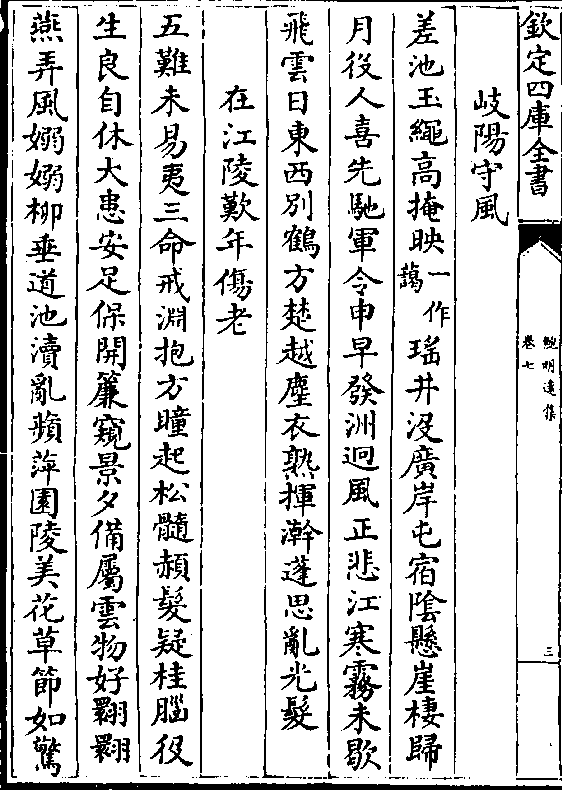 欽定四庫全書
鮑明遠集
卷七
三
岐陽守風
差池玉繩高掩映一作藹瑤井沒廣岸屯宿隂懸崖棲歸
月役人喜先馳軍令申早發洲迥風正悲江寒霧未歇
飛雲日東西別鶴方楚越塵衣孰揮澣蓬思亂光髮
在江陵歎年傷老
五難未易夷三命戒淵抱方瞳起松髓赬髮疑桂腦役
生良自休大患安足保開簾窺景夕備屬雲物好翾翾
燕弄風嫋嫋柳垂道池瀆亂蘋萍園陵美花草節如驚